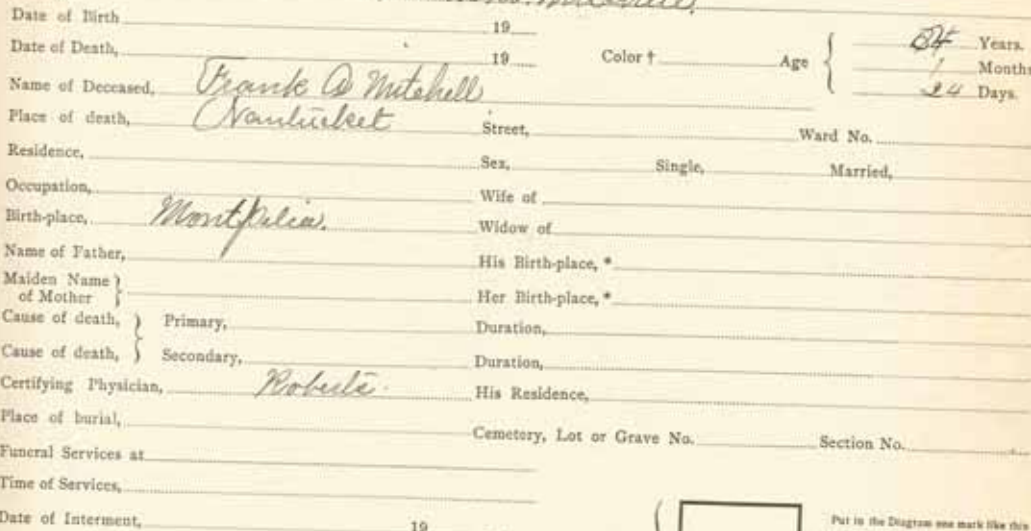 Mitchell.
Date of Birth 19
Date of Death, 19 Color † Age 54 Years.
1 Months
24 Days.
Name of Deceased, Frank D Mitchell
Place of death, Nantucket Street, Ward No.
Residence, Sex, Single, Married,
Occupation, Wife of
Birth-place, Montpilia. Widow of
Name of Father, His Birth-place, *
Maiden Name of Mother Her Birth-place, *
Cause of death, Primary, Duration,
Cause of death, Secondary, Duration,
Certifying Physician, Roberts. His Residence,
Place of burial, Cemetery, Lot or Grave No. Section No.
Funeral Services at
Time of Services,
Date of Interment, 19 Put in the Diagram one mark like this